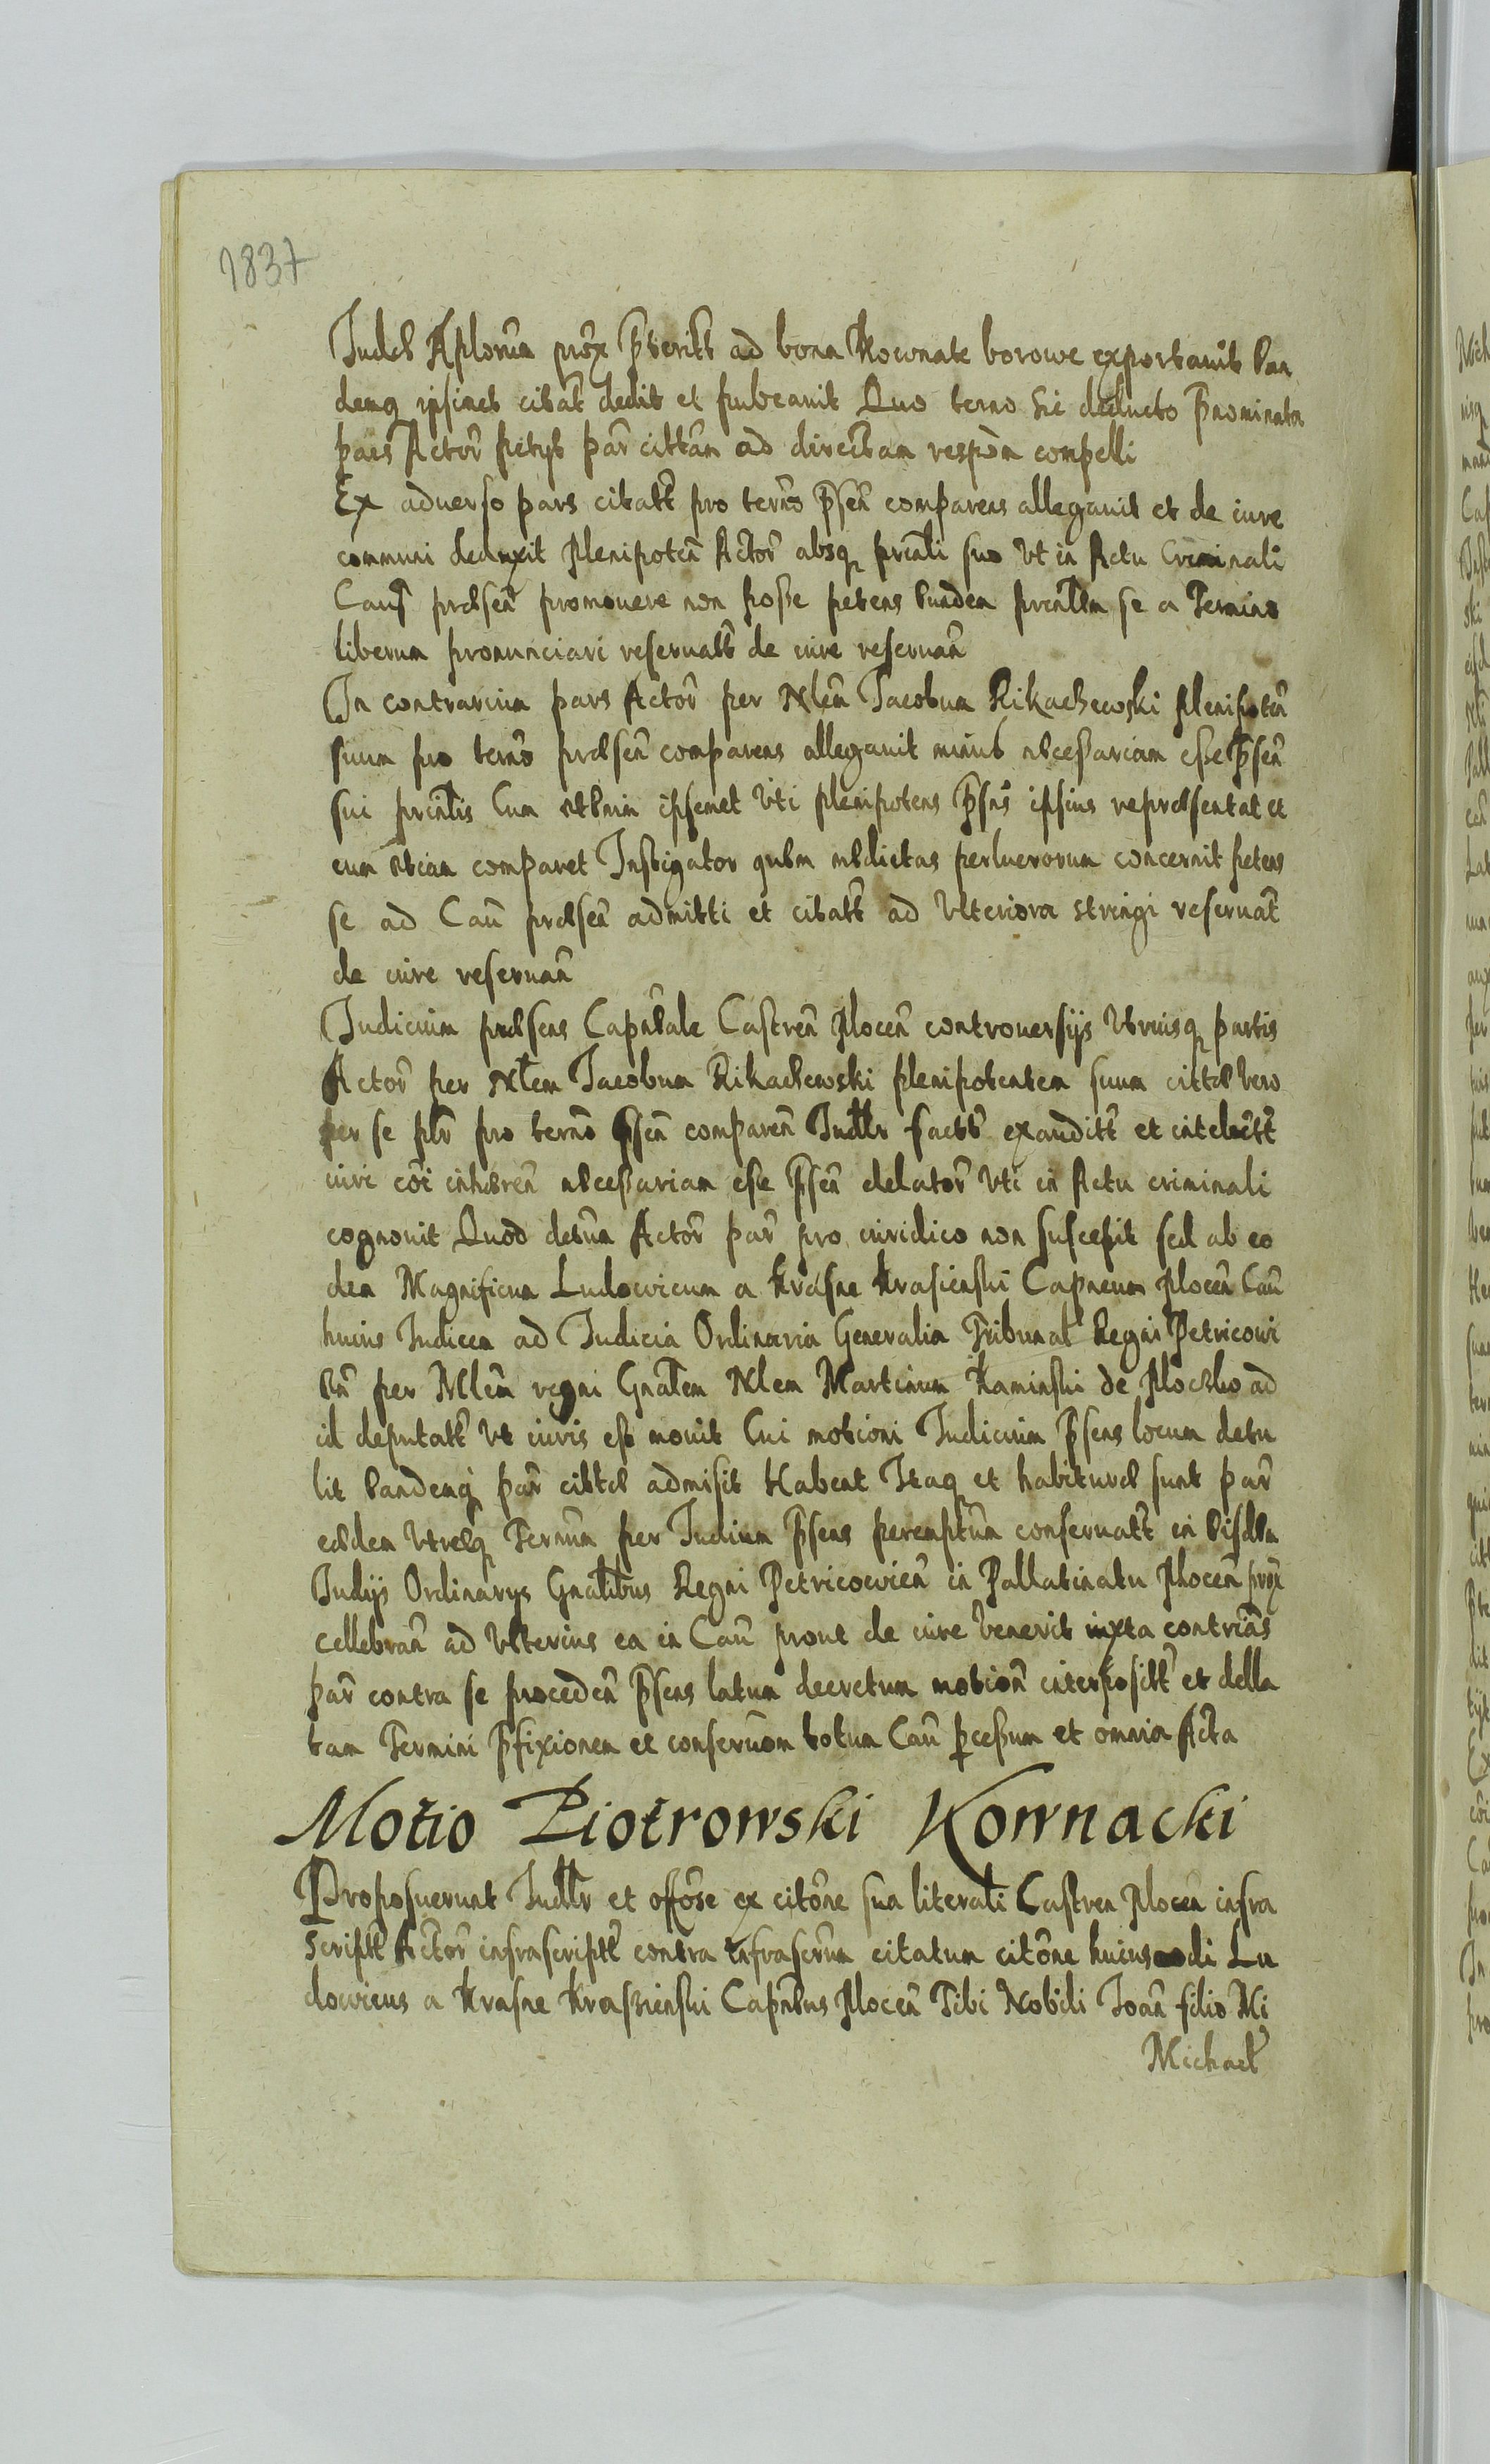 1837
Judæ Aplorũm prox p̃terits ad bona Kownate borowe exportauit ean
demq ipsimet citat̃ dedit et publcauit Quo terno sic deducto p̃nominata
pars Actor̃ petyt par̃ cittãm ad directam respõn compelli
Ex aduerso pars citatt pro termõ p̃sen̄ comparens allegauit et de iure
communi deduxit Plenipoten̄ Actor̃ absq prin̄li suo Vt in Actu Criminali
Caus̃ præsen̄ promouere non posse petens eundem prin̄lem se a Termino
liberum pronunciari reseruatt de iure reseruan̄
In contrarium pars Actor̃ per Nlem̃ Jacobum Rikaczewski Plenipoten̄
suum pro termõ præsen̄ comparens allegauit minus necessariam esse p̃sen̄
sui prin̄lis Cum etenim ipsemet Vti plenipotens p̃snã ipsius repræsentat et
cum etiam comparet Instigator quem medietas perlucrorum concernit petens
se ad Cau̅ præsen̄ admitti et citatt ad Vlteriora stringi reseruat̃
de iure reseruan̄
Judicium præsens Capn̄eale Castren̄ Plocen̄ controuersijs Vtriusq partis
Actor̃ per Nlem̃ Jacobum Rikaczewski plenipotentem suum cittæ vero
per se plr̃ pro termõ p̃sen̄ comparen̄ Judlr factis exauditt et intelectt
iuri cõi inhæren̄ necessariam esse p̃sen̄ delator̃ Vti in Actu criminali
cognouit Quod detũm Actor̃ par̃ pro iuridico non suscepit sed ab eo
dem Magnificum Ludowicum a Krasne Krasienski Capneum Plocen̄ Cau̅
huius Judicem ad Judicia Ordinaria Generalia Tribunal̃ Regni Petricoui
en̄ per Mlem̃ regni Gnãlem Nlem Martinum Kaminski de Plocko ad
id deputatt Vt iuris est mouit Cui motioni Judicium p̃sens locum detu
lit eandemq par̃ cittæ admisit Habent Itaq et habituræ sunt par̃
eædem Vtræq Terminũm per Judium p̃sens peremptũm conseruatt in eisdem
Judijs Ordinarys Gnãlibus Regni Petricowien̄ in Pallatinatu Plocen̄ prox
cellebran̄ ad Vlterius ea in Cau̅ prout de iure Venerit iuxta contriãs
par̃ contra se proceden̄ p̃sens latum decretum motion̄ interpositt et della
tam Termini p̃fixionem et conseruõm totum Cau̅ p̃cessum et omnia Acta
Motio Piotrowski Kownacki
Proposuerunt Judlr et offõse ex citõne sua literali Castren Plocen̄ infra
scriptt Actor̃ infrascriptt contra infrascrũm citatum citõne huiusmodi Lu
dowicus a Krasne Krasienski Capn̄eus Plocen̄ Tibi Nobili Joan̄ filio Mi
Michael̃